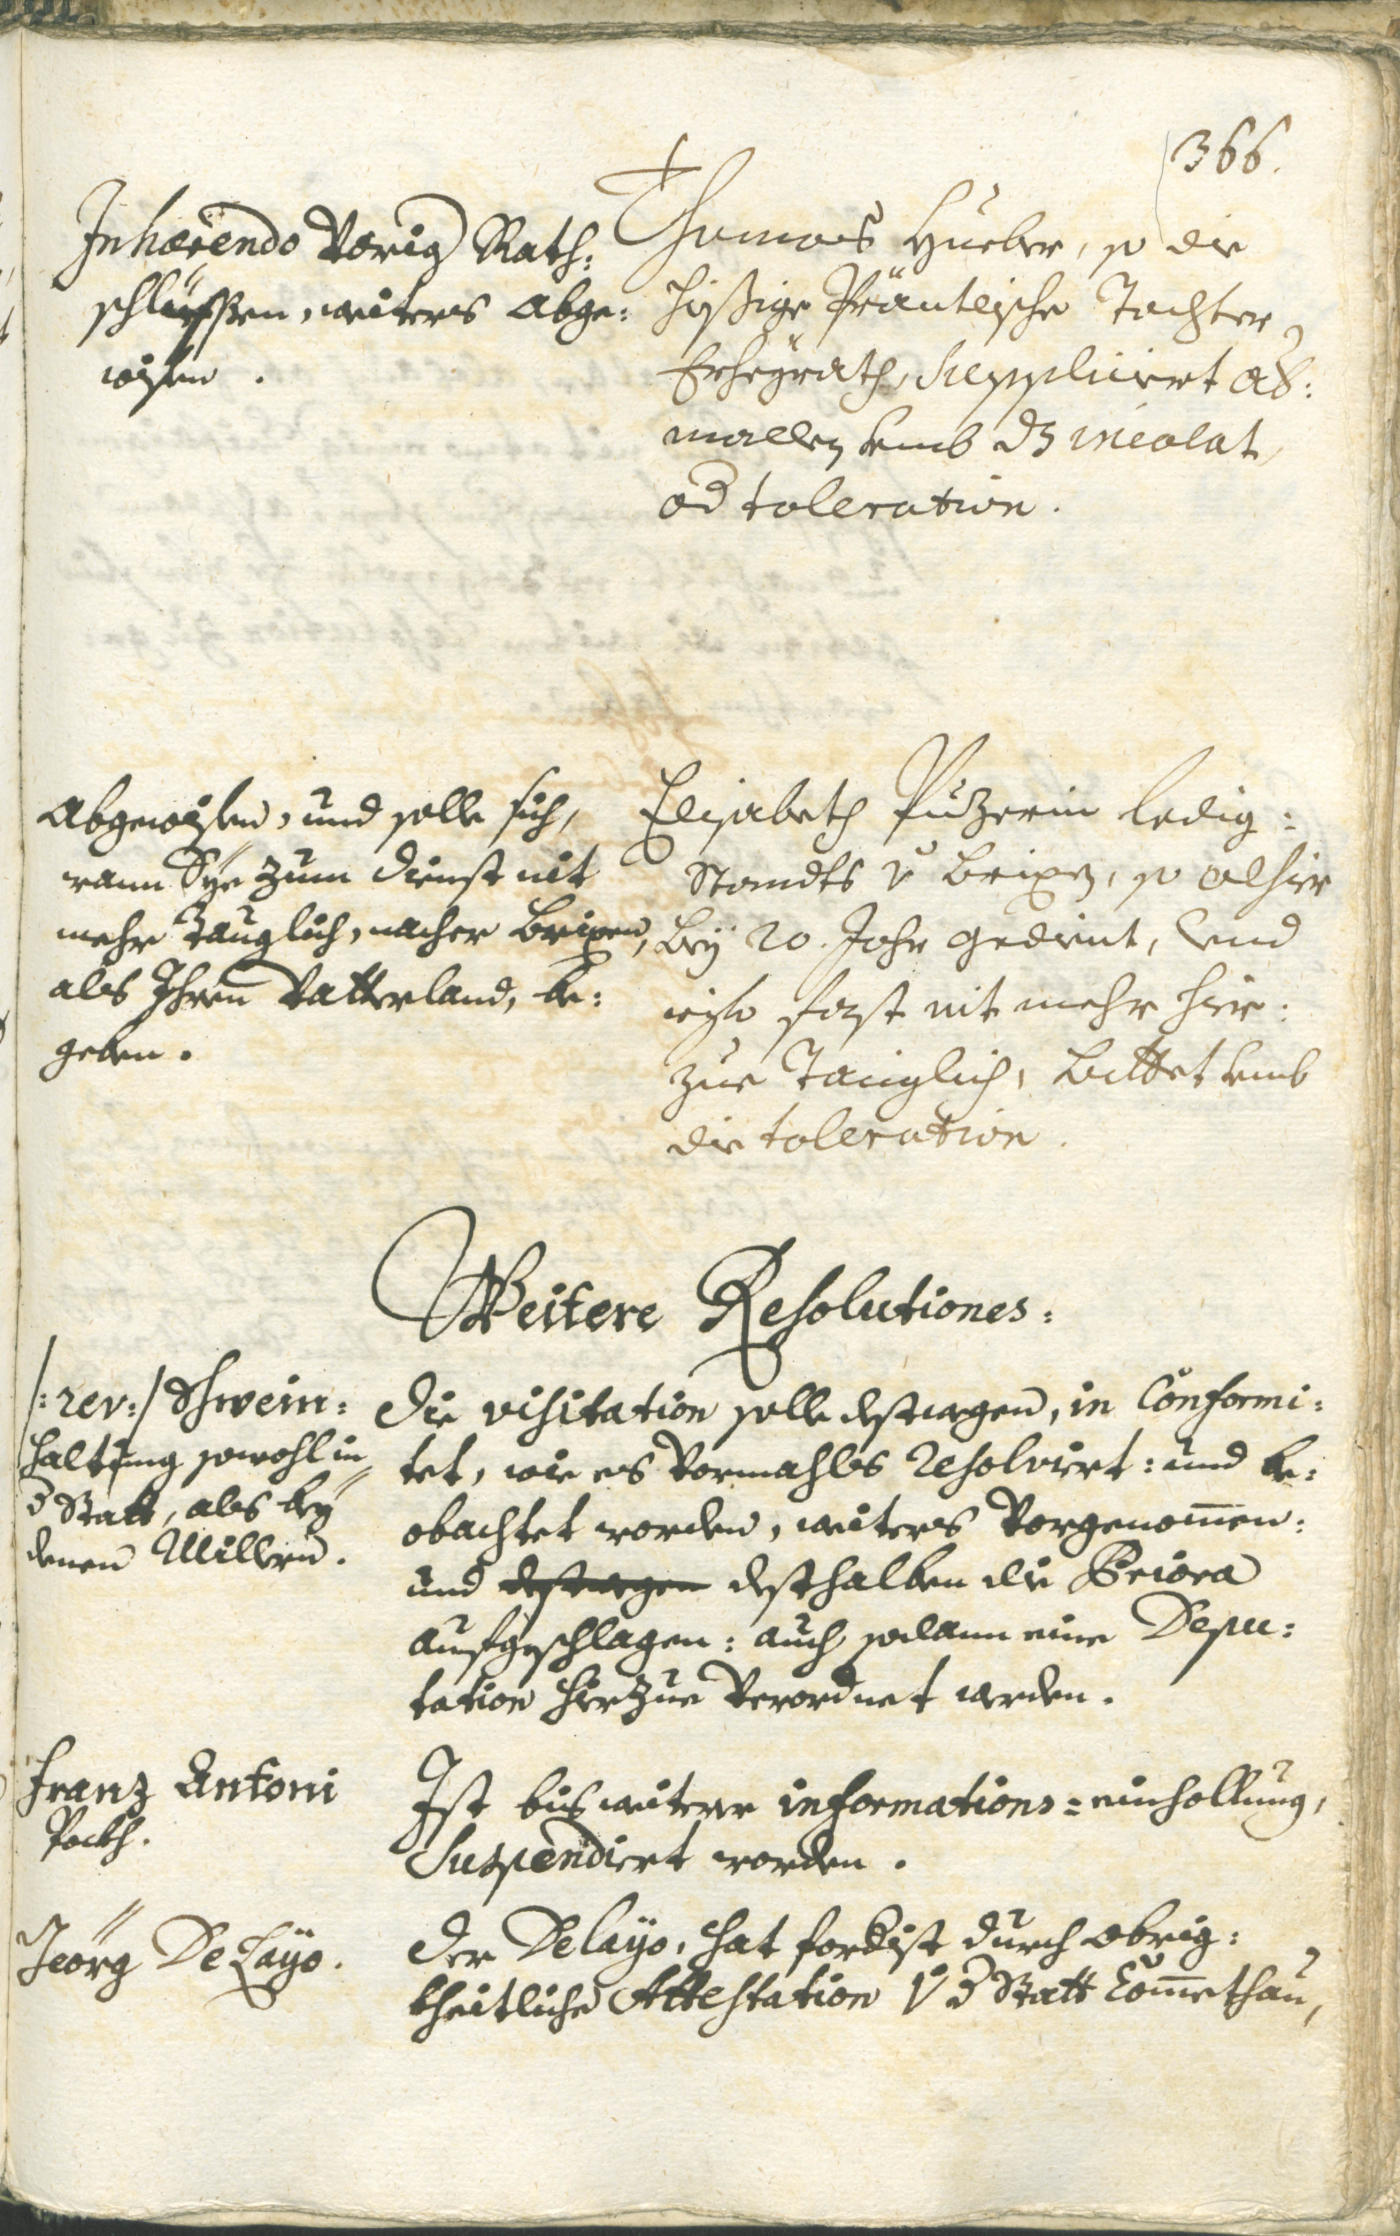 366.
Inhærendo Vorig Rath:
schlüssen, weiters abge:
wisen.
Thomas Hueber, so die
hießige Präntlische Tochter
Erheÿrath, Suppliciert ab:
mallen umb dz incolat,
od toleration.
Abgewisen, und solle sich,
wann Sÿe zum dienst nit
mehr tauglich, nacher Brixen,
als Ihren Vatterland, be:
geben.
Elisabeth Puzerin ledig:
Standts v Brixen, so alhier
beÿ 20. Jahr gedient, und
iezo fast nit mehr hier:
zue Tauglich, bittet umb
die toleration.
Weitere Resolutiones:
/:rev:/ Schwein:
haltung sowohl in
d Statt, als beÿ
denen Millern.
Die visitation solle destwegen, in Conformi:
tet, wie es Vormahls resolviert: und be:
obachtet worden, weiters Vorgenommen:
und destwegen desthalben die Priora
aufgeschlagen: auch sodann eine Depu:
tation hierzue Verordnet werden.
Franz Antoni
Pockh.
Ist bis weiterer informations=einhollung,
Suspendiert worden.
Jeörg De Laÿo.
Der Delaÿo, hat fordist durch obrig:
kheitliche Attestation V d Statt Commethau,